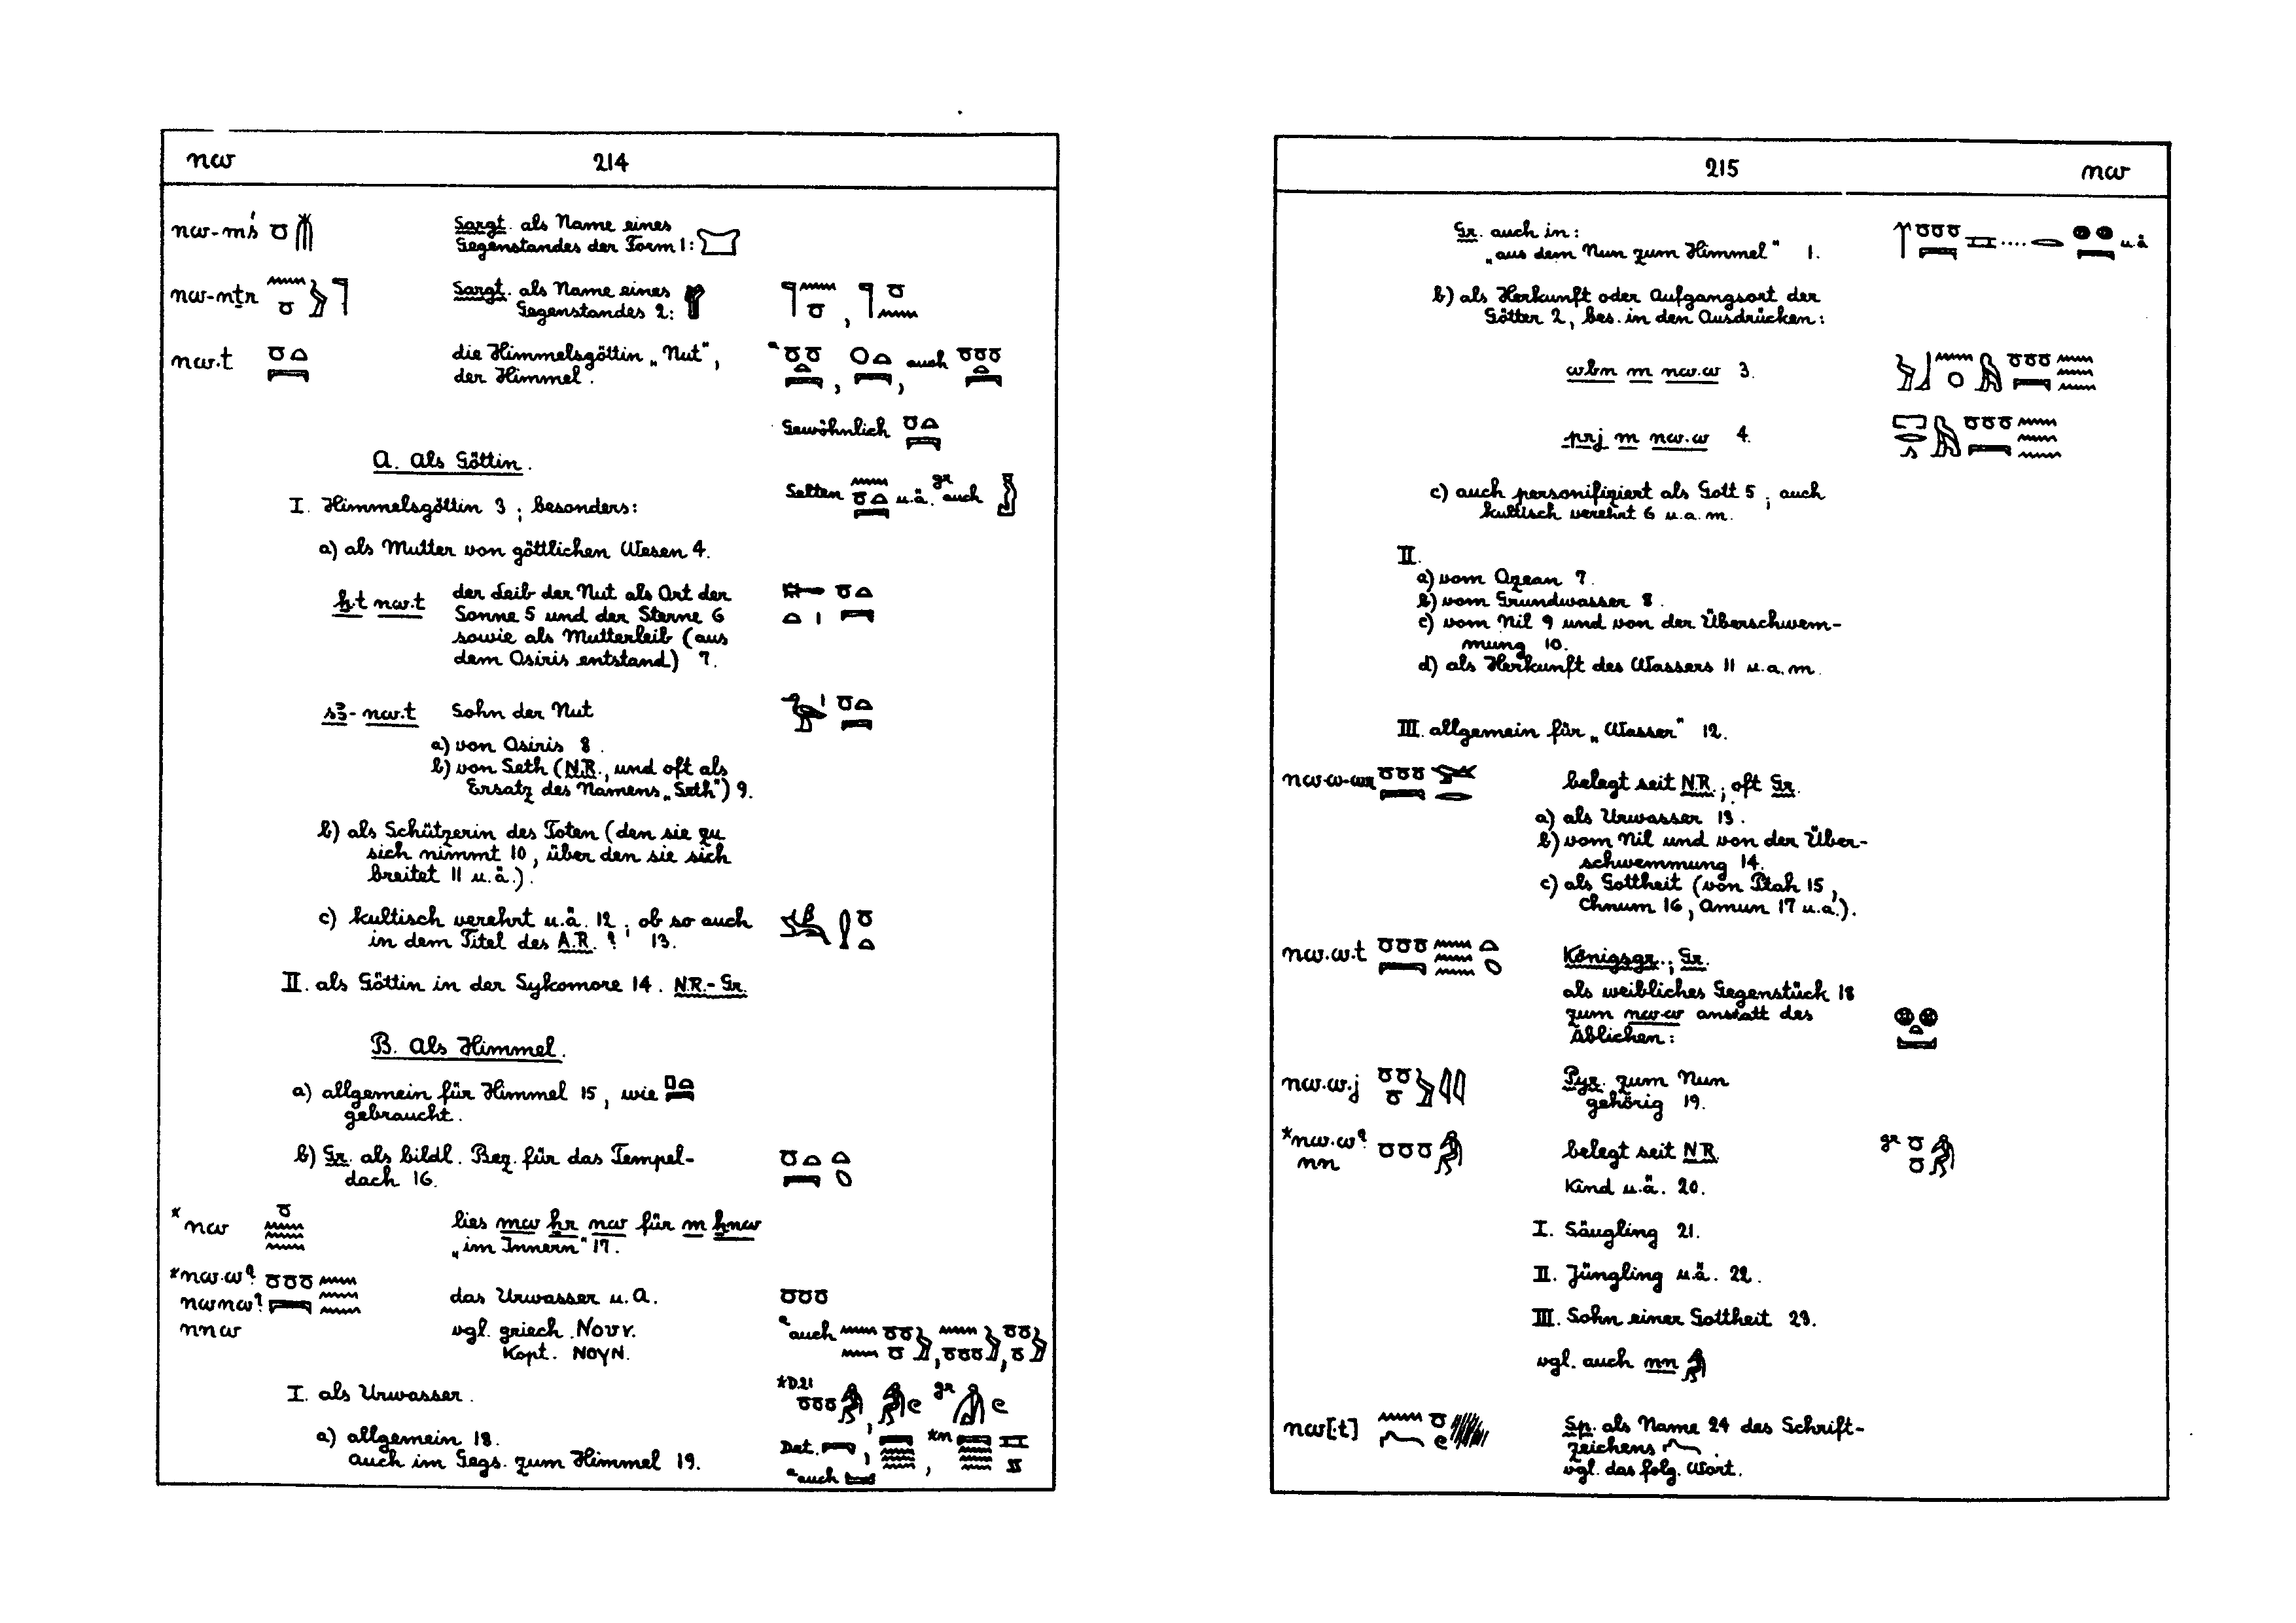 nw 214
nw-mś Sargt. als Name eines
Gegenstandes der Form 1:
nw-nṯr Sargt. als Name eines
Gegenstandes 2:
nw.t die Himmelsgöttin „Nut", auch
der Himmel.
Gewöhnlich
A. Als Göttin.
Selten u.ä. gr auch
I. Himmelsgöttin 3; besonders:
a) als Mutter von göttlichen Wesen 4.
ẖ.t nw.t der Leib der Nut als Ort der
Sonne 5 und der Sterne 6
sowie als Mutterleib (aus
dem Osiris entstand) 7.
s3-nw.t Sohn der Nut
a) von Osiris 8.
b) von Seth (N.R., und oft als
Ersatz des Namens „Seth") 9.
b) als Schützerin des Toten (den sie zu
sich nimmt 10, über den sie sich
breitet 11 u.ä.).
c) kultisch verehrt u.ä. 12; ob so auch
in dem Titel des A.R.? 13.
II. als Göttin in der Sykomore 14. N.R.-Gr.
B. Als Himmel.
a) allgemein für Himmel 15, wie
gebraucht.
b) Gr. als bildl. Bez. für das Tempel-
dach 16.
* nw lies mw ẖr nw für m ẖnw
„im Innern" 17.
*nw.w?
nwnw? das Urwasser u.A.
nnw vgl. griech. Νουν. auch
Kopt. ΝΟΥΝ.
I. als Urwasser. *D.21 gr
a) allgemein 18. Det. , , *n
auch im Gegs. zum Himmel 19. auch
215 nw
Gr. auch in:
„aus dem Nun zum Himmel" 1. .... u.ä
b) als Herkunft oder Aufgangsort der
Götter 2, bes. in den Ausdrücken:
wbn m nw.w 3.
prj m nw.w 4.
c) auch personifiziert als Gott 5; auch
kultisch verehrt 6 u.a.m.
II.
a) vom Ozean 7.
b) vom Grundwasser 8.
c) vom Nil 9 und von der Überschwem-
mung 10.
d) als Herkunft des Wassers 11 u.a.m.
III. allgemein für „Wasser" 12.
nw.w-wr belegt seit N.R.; oft Gr.
a) als Urwasser 13.
b) vom Nil und von der Über-
schwemmung 14.
c) als Gottheit (von Ptah 15,
Chnum 16, Amun 17 u.a.).
nw.w.t Königsgr.; Gr.
als weibliches Gegenstück 18
zum nw.w anstatt des
üblichen:
nw.w.j Pyr. zum Nun
gehörig 19.
*nw.w? belegt seit N.R. gr
nn
Kind u.ä. 20.
I. Säugling 21.
II. Jüngling u.ä. 22.
III. Sohn einer Gottheit 23.
vgl. auch nn
nw[.t] Sp. als Name 24 des Schrift-
zeichens .
vgl. das folg. Wort.